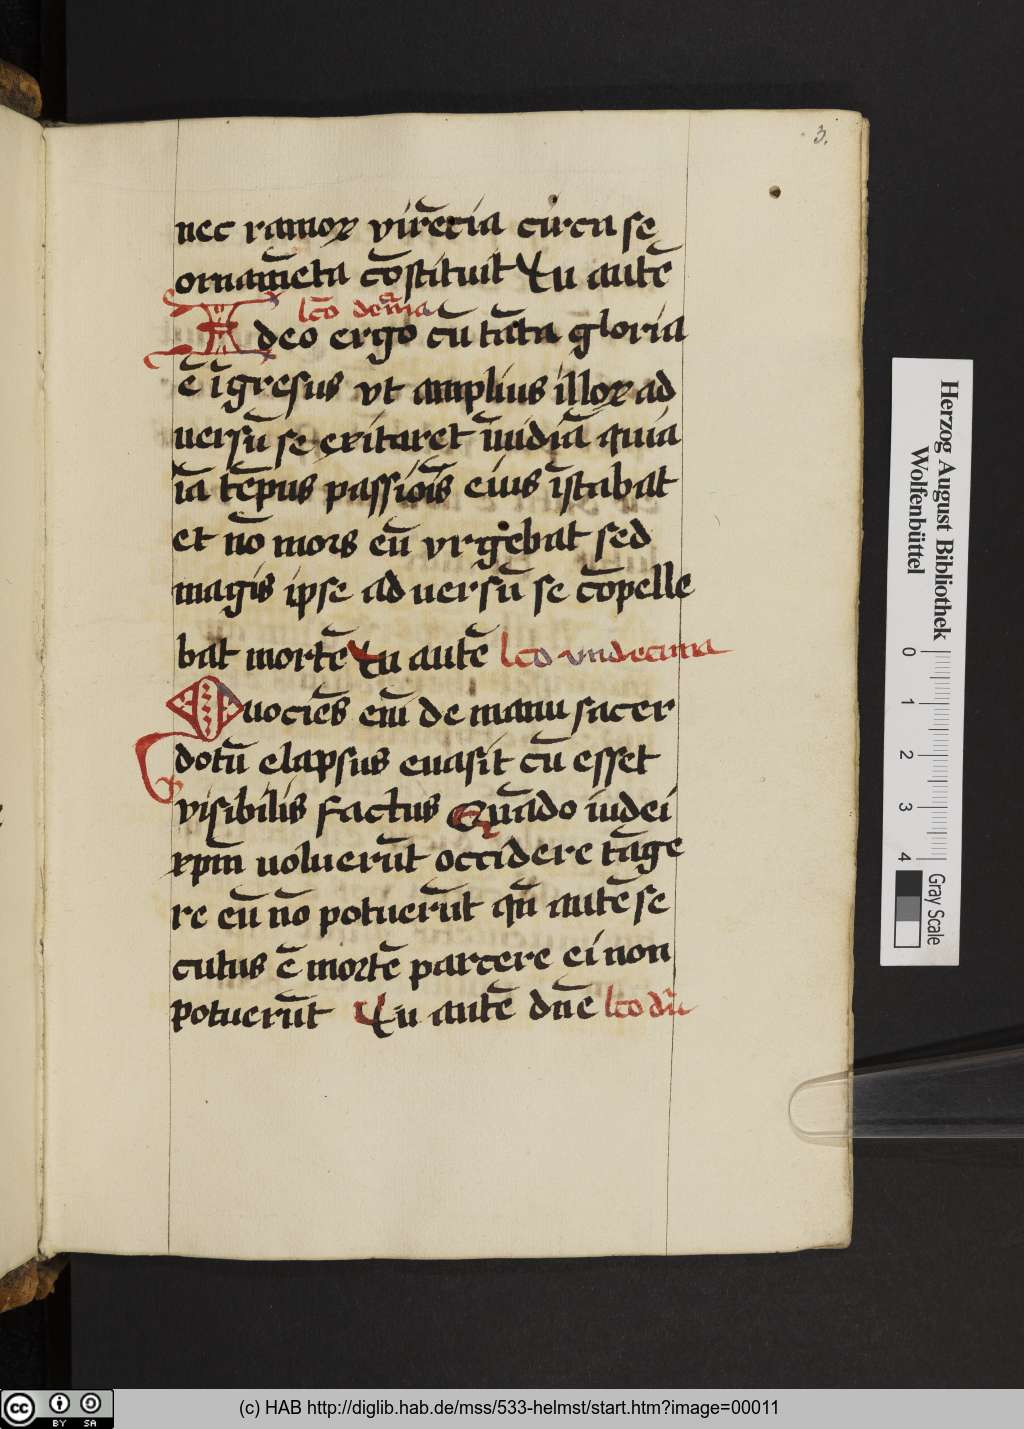 3.
nec ramoꝝ vire̅cia circu se
orname̅ta co̅stituit Tu aute̅
lc̅o decima
Ideo ergo cu̅ ta̅ta gloria
e̅ i̅gresus vt amplius illoꝝ ad
uersu̅ se exitaret i̅uidia̅ quia
ia̅ te̅pus passio̅is eius i̅stabat
et no̅ mors eu̅ vrgebat sed
magis ipse ad uersu̅ se co̅pelle
bat morte̅ Tu aute̅ lc̅o vndecima
Quocie̅s eni̅ de manu sacer
dotu̅ elapsus euasit cu̅ esset
visibilis factus Qua̅do iudei
xpm̅ uolueru̅t occidere ta̅ge
re eu̅ no̅ potueru̅t qn̅ aute̅ se
cutus e̅ morte̅ parcere ei non
potueru̅t Tu aute̅ dn̅e lc̅o du̅
Herzog August Bibliothek
Wolfenbüttel
0 1 2 3 4
Gray Scale
cc BY SA
(c) HAB http://diglib.hab.de/mss/533-helmst/start.htm?image=00011